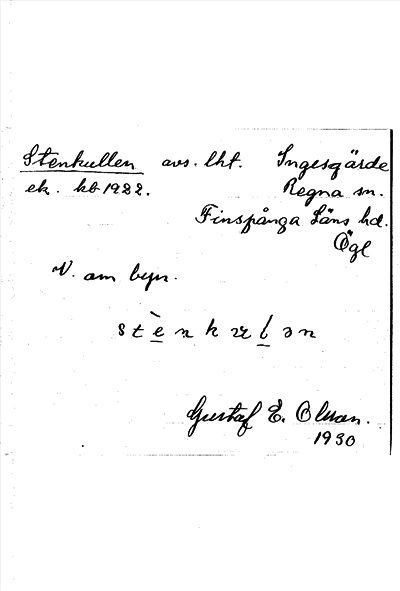 Stenkullen avs. lht. Ingesgärde
ek. kb 1922. Regna sn.
Finspånga Läns hd.
Ögl
V. om byn.
Gustaf E. Olson.
1930